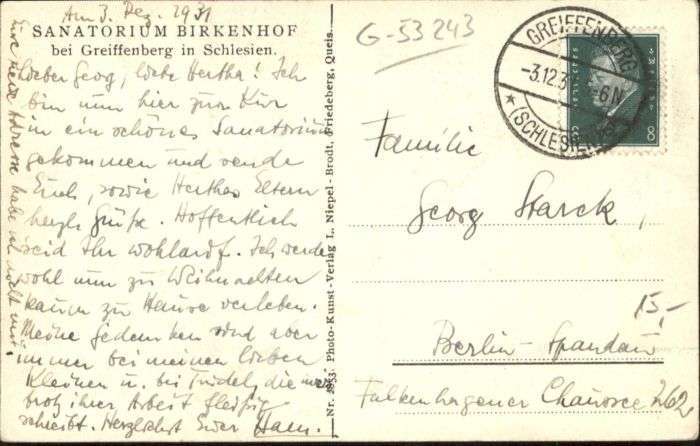 Am 3. Dez. 1931
SANATORIUM BIRKENHOF
bei Greiffenberg in Schlesien.
Lieber Georg, liebe Hertha! Ich
bin nun hier zur Kur
in ein schönes Sanatorium
gekommen und sende
Euch, sowie Herthas Eltern
herzl. Grüße. Hoffentlich
seid Ihr wohlauf. Ich werde
wohl nun zu Weihnachten
kaum zu Hause verleben.
Meine Gedanken sind aber
immer bei meinen lieben
Kleinen u. bei Trudel, die
trotz ihrer Arbeit fleißig
schreibt. Herzlichst Euer
Eure neue Adresse habe ich nicht mit.
Nr. Photo-Kunst-Verlag L. Niepel-Brodt, Friedeberg, Queis.
G-53243
GREIFFENBERG
-3.12.3
6N
(SCHLESIEN)
8 8
Familie
Georg Starck,
15,-
Berlin-Spandau
Falkenhagener Chaussee 262